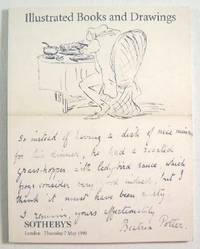 Illustrated Books and Drawings
So instead of having a dish of nice minnows
for his dinner, he had a roasted
grass-hopper with lady-bird sauce, which
frogs consider very good indeed, but I
think it must have been nasty
I remain, yours affectionately
Beatrix Potter.
SOTHEBY'S
London Thursday 7 May 1990